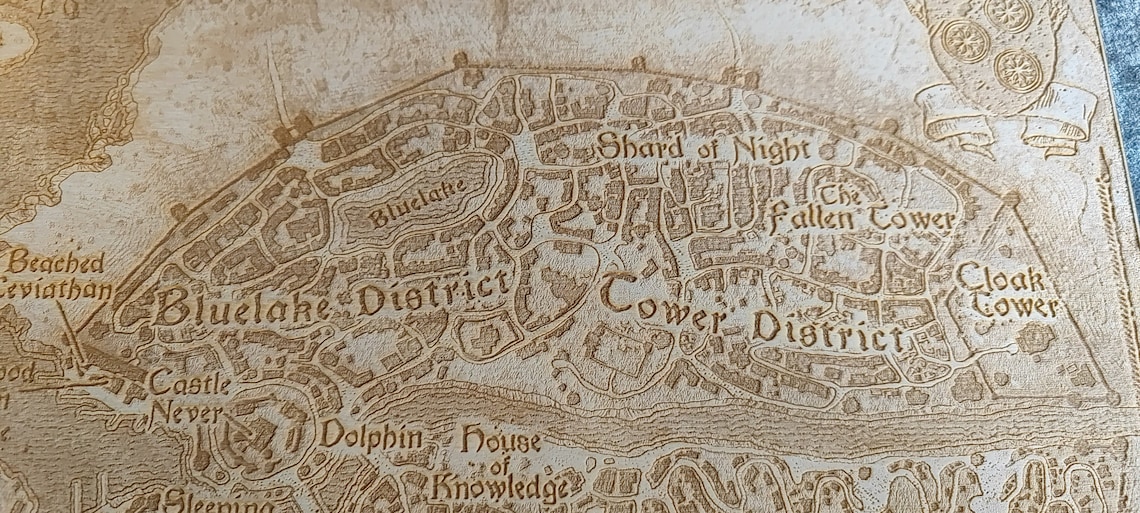 Shard of Night
Bluelake
The
Fallen Tower
Beached
Leviathan
Bluelake District
Tower District
Cloak
Tower
Castle
Never
Dolphin
House
of
Knowledge
Sleeping